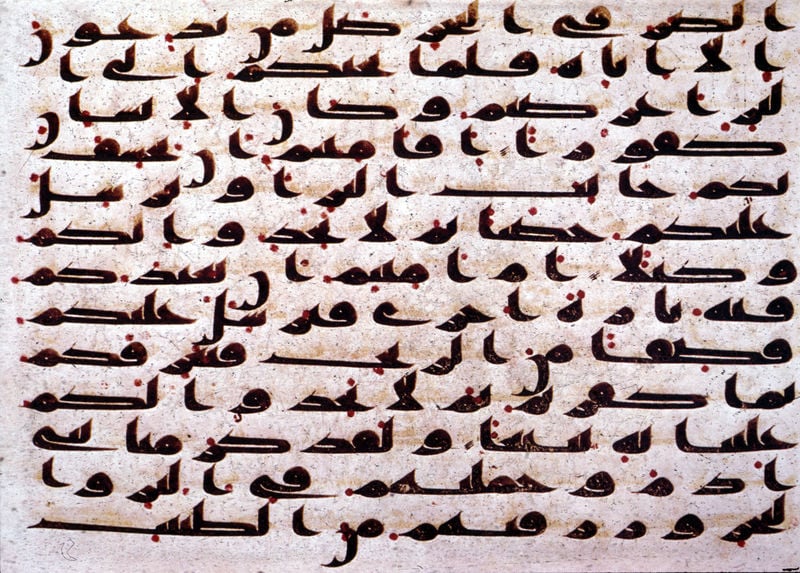 الضر في البحر ضل من تدعون
الا اياه فلما نجكم الى ا
لبر اعرضتم وكان الانسان
كفورا افامنتم ان يخسف
بكم جانب البر او يرسل
عليكم حصبا ثم لا تجدوا لكم
وكيلا ام امنتم ان يعيدكم
فيه تارة اخرى فيرسل عليكم
قصفا من الريح فيغرقكم
بما كفرتم ثم لا تجدوا لكم
علينا به تبيعا ولقد كرمنا بني
ادم وحملنهم في البر وا
لبحر ورزقنهم من الطيبت